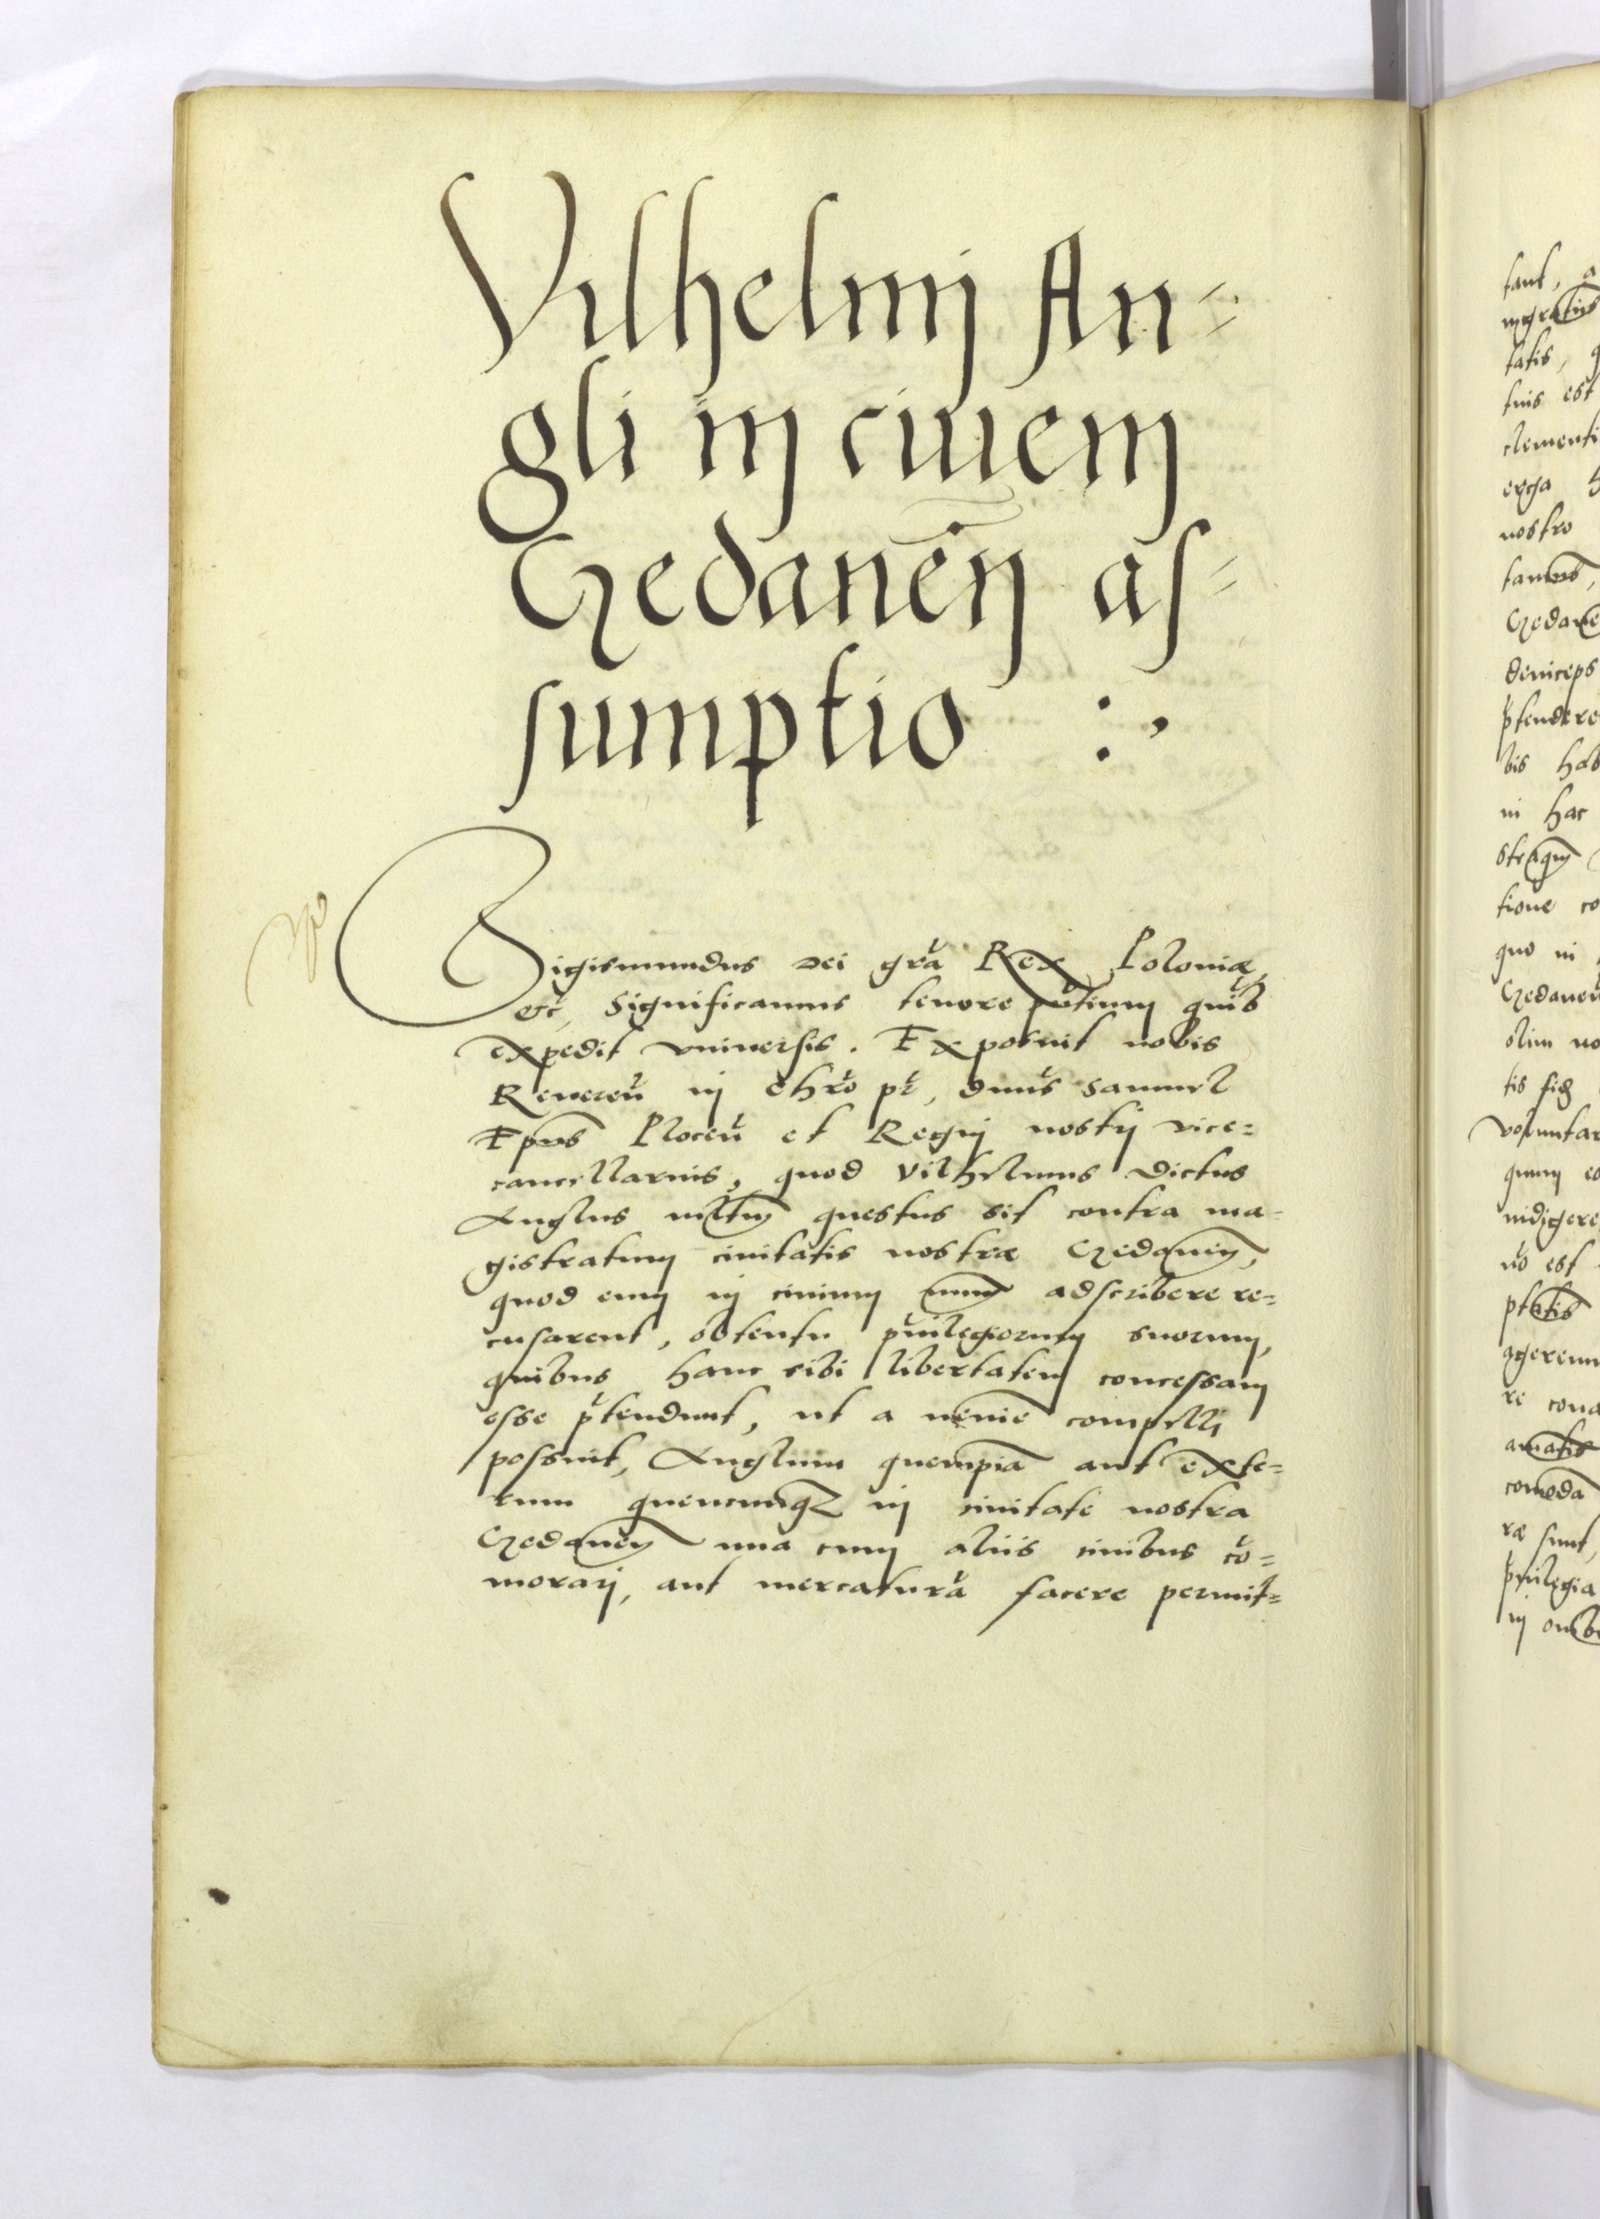 Vilhelmj An-
gli in ciuem
Gedaneñ as-
sumptio :,
Sigismundus Dei gra Rex Poloniæ,
etc, Significamus tenore pntium quib
expedit vniuersis. Exposuit nobis
Reueren in Chro pr, dnus Samuel
Epus Plocen et Regnj nostrj vice-
cancellarius, quod Vilhelmus dictus
Anglus multum questus sit contra ma-
gistratum ciuitatis nostræ Gedanen,
quod eum in ciuium num adscribere re-
cusarent, obtentu priuilegiorum suorum,
quibus hanc sibi libertatem concessam
esse ptendunt, ut a nemine compellj
possint, Anglum quempia aut exte-
rum quencunq in ciuitate nostra
Gedanen una cum aliis ciuibus co-
morarj, aut mercatura facere permit-
tant,
tatis,
tuis est
clementi
erga
nostro
Gedane
deinceps
ptendere
bis hab
in hac
tione co
quo in
Gedanen
olim no
voluntar
quum eo
indigere
uo est
re cona
comoda
ræ sunt,
priuilegia
in omib